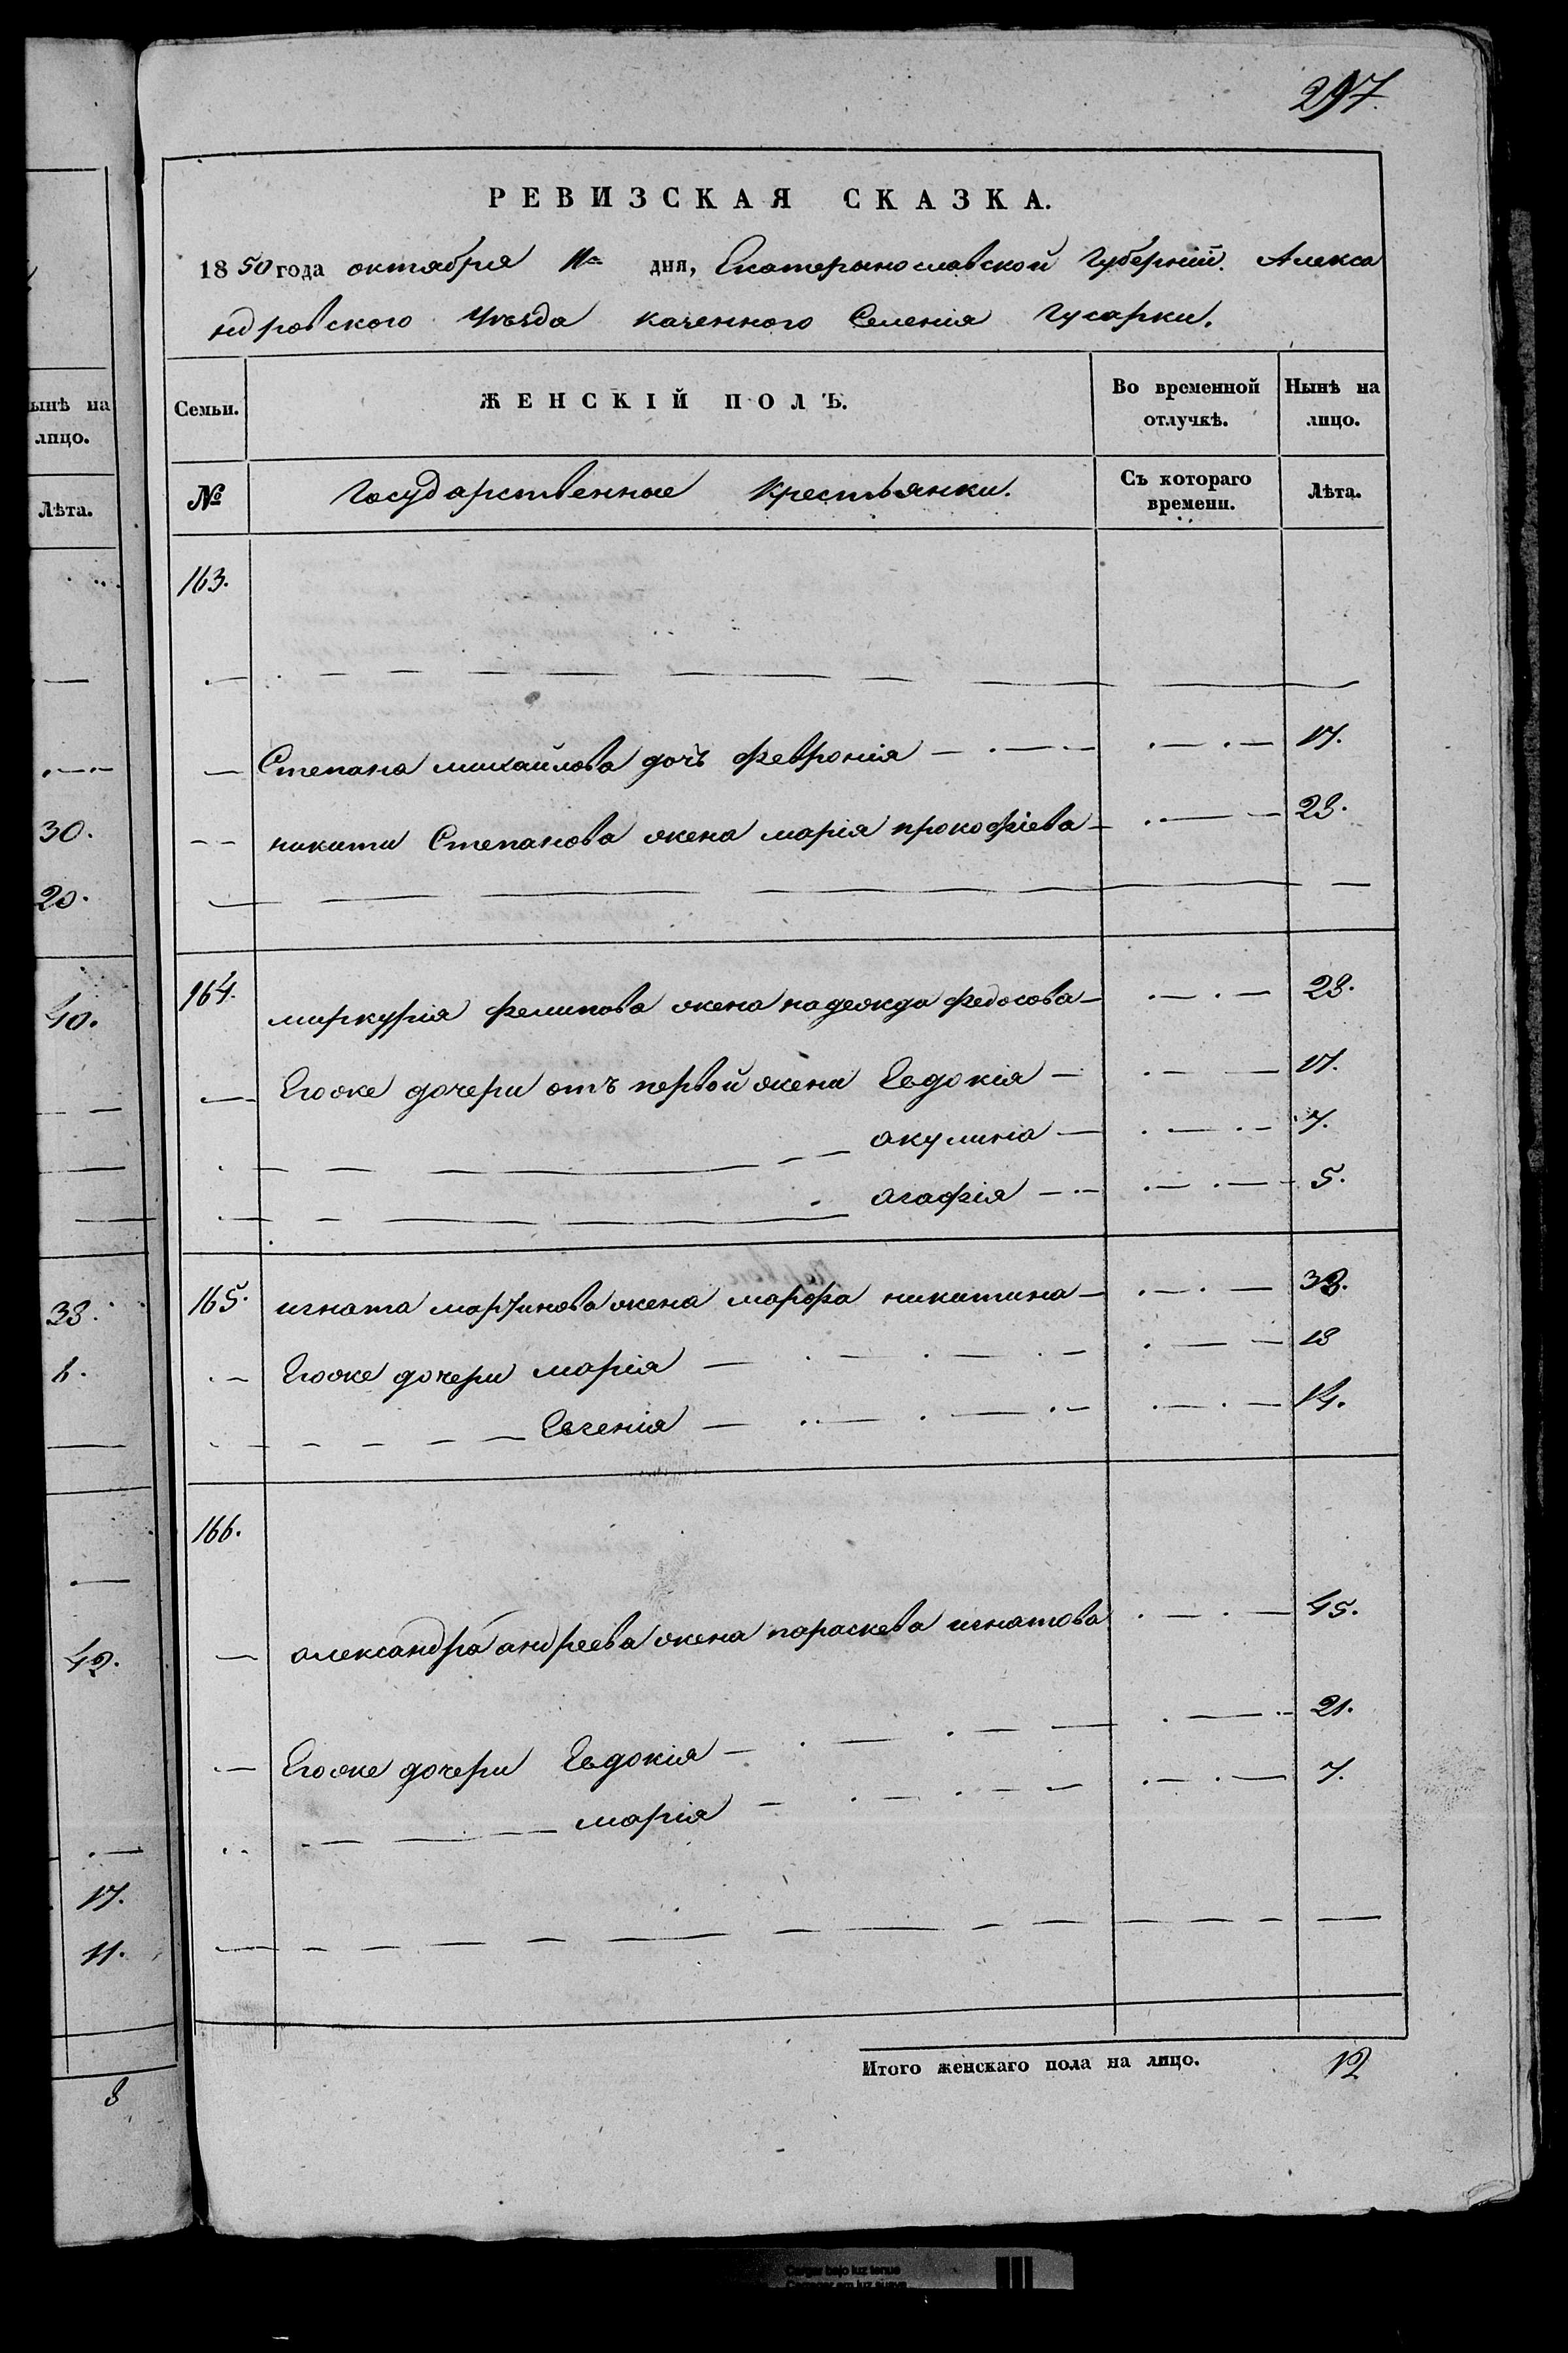 ынѣ на
лицо.
Лѣта.
30.
20.
40.
42.
17.
11.
8
297.
РЕВИЗСКАЯ СКАЗКА.
1850 года октября 11го дня, Екатеринославской Губерніи. Алекса
ндровского Уѣзда казенного Селенія Гусарки.
Семьи. ЖЕНСКІЙ ПОЛЪ. Во временной отлучкѣ. Нынѣ на лицо.
№ Государственные Крестьянки. Съ котораго времени. Лѣта.
163.
Степана михайлова дочь феврония 17.
никиты Степанова жена марія прокофіева 23.
164. миркурія филипова жена надежда федосова 28.
Егоже дочери отъ первой жены Евдокія 17.
акулина 7.
агафія 5.
165. игната мартинова жена марфа никитина 38.
Егоже дочери марія 18
Евгенія 14.
166.
александра андреева жена параскева игнатова 45.
Егоже дочери Евдокія 21.
марія 7.
Итого женскаго пола на лицо. 12